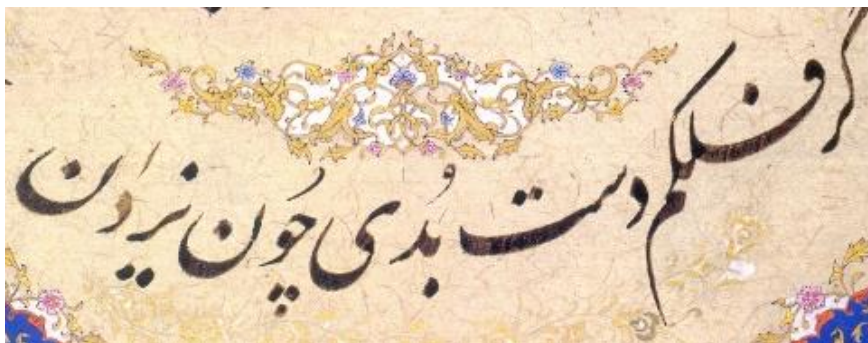 گر فلکم دست بُدی چُون یزدان